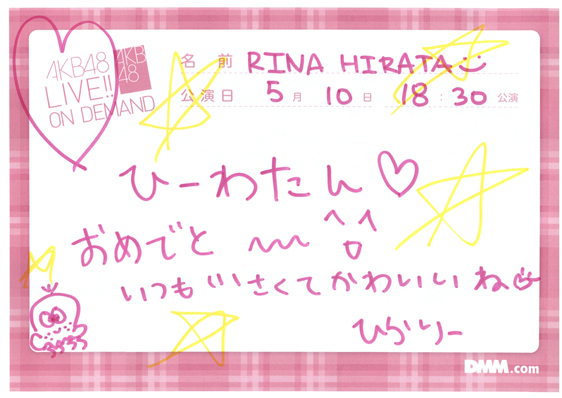 AKB48 LIVE!! ON DEMAND
AKB48
名前 RINA HIRATA
公演日 5月 10日 18:30 公演
ひーわたん♡
おめでと〜〜
いつも小さくてかわいいね
ひらりー
DMM.com